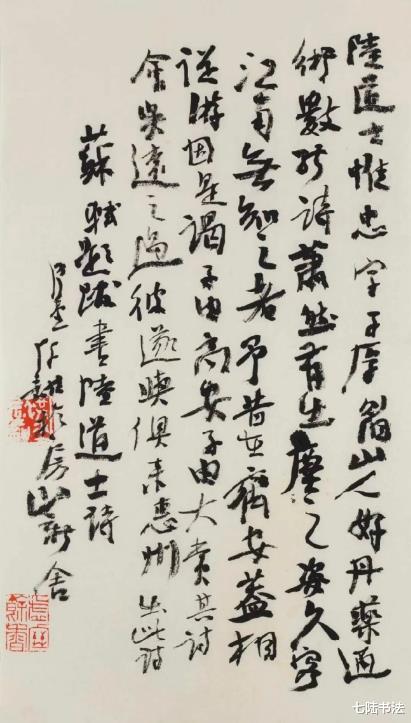 陸道士惟忠字子厚眉山人好丹藥通
術數能詩蕭然有出塵之姿久客
江南無知之者予昔在齊安蓋相
從游因是謁子由高安子由大賞其詩
會吳遠之過彼遂與俱來惠州出此詩
蘇軾題跋書陸道士詩
於房山新舍
七陆书法